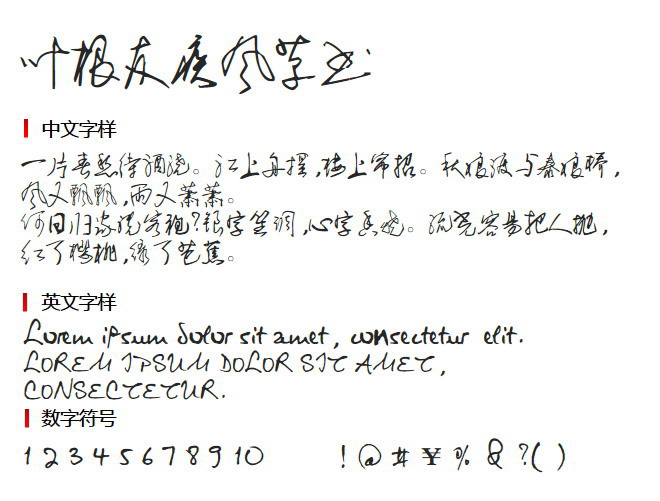 叶根友疾风草书
中文字样
一片春愁待酒浇。江上舟摇,楼上帘招。秋娘渡与泰娘桥,
风又飘飘,雨又萧萧。
何日归家洗客袍?银字笙调,心字香烧。流光容易把人抛,
红了樱桃,绿了芭蕉。
英文字样
Lorem ipsum dolor sit amet, consectetur elit.
LOREM IPSUM DOLOR SIT AMET,
CONSECTETUR.
数字符号
1 2 3 4 5 6 7 8 9 10 ! @ # ¥ % & ? ( )